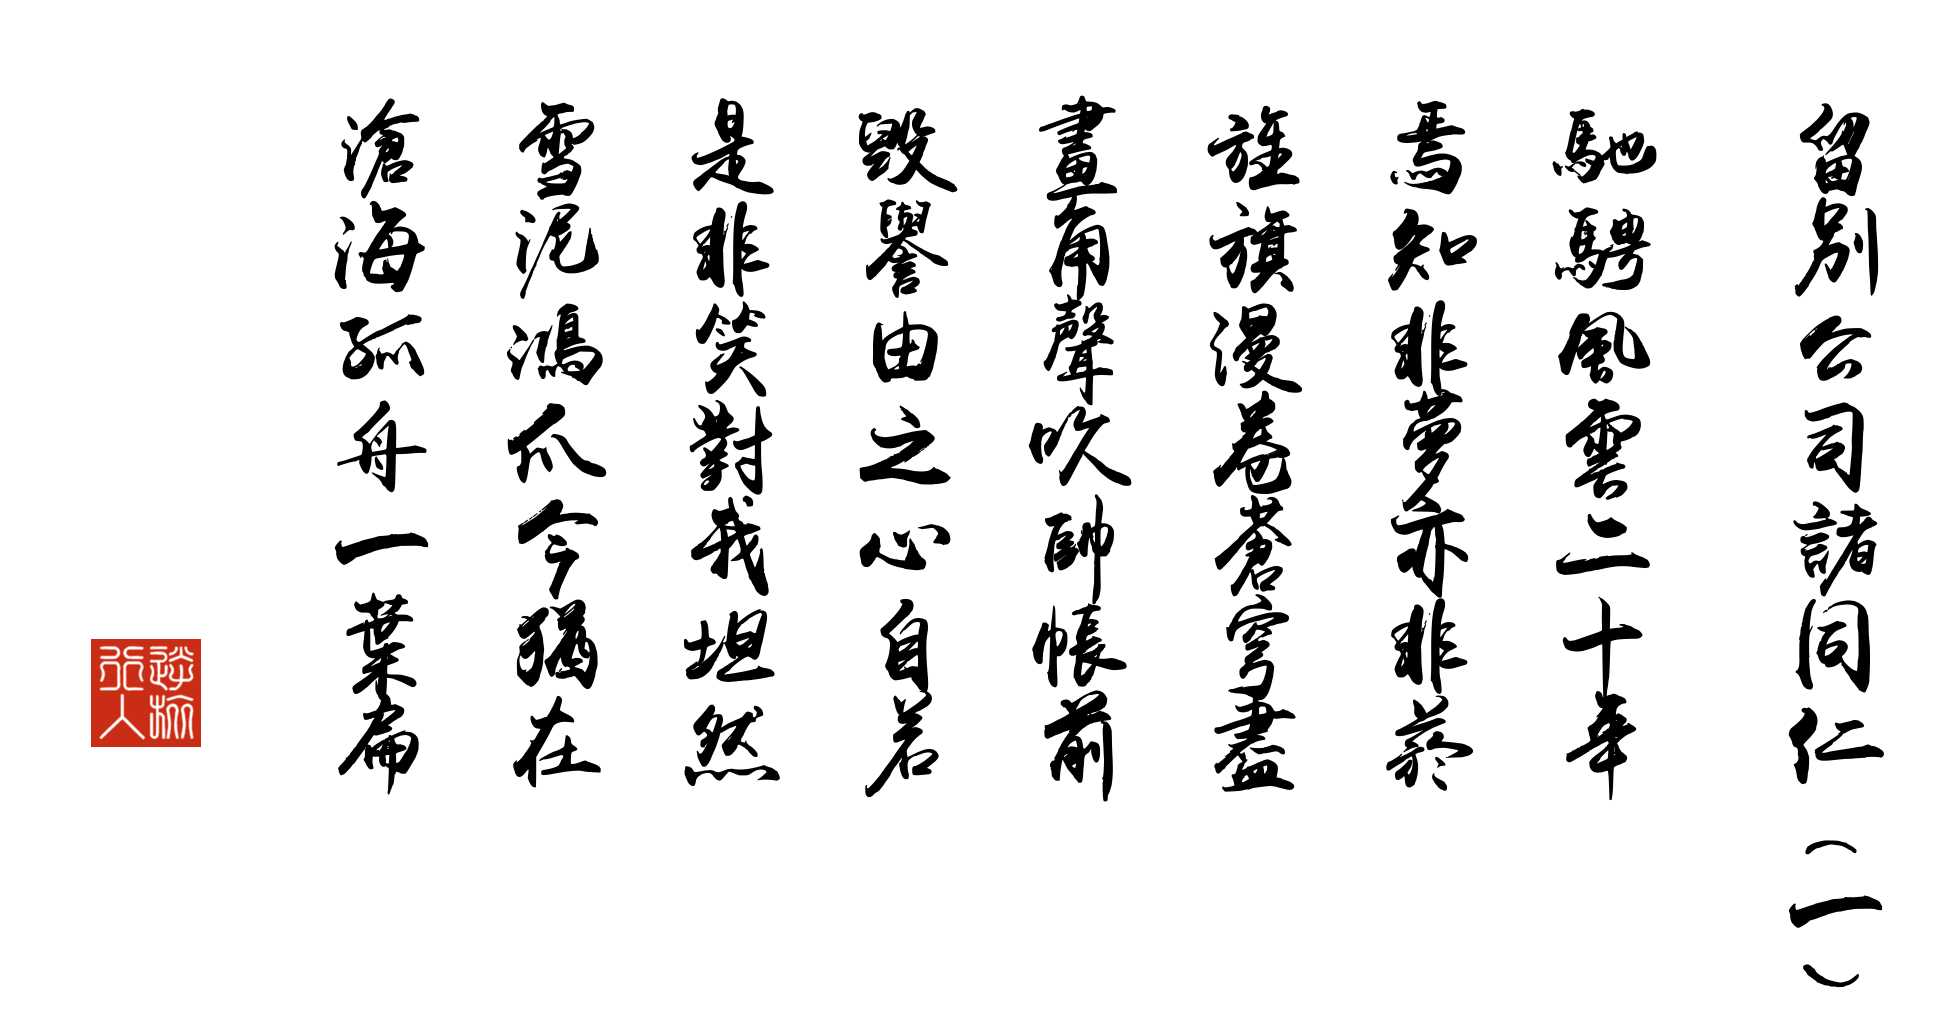 留別公司諸同仁（一）
馳騁風雲二十年
焉知非夢亦非菸
旌旗漫卷蒼穹盡
畫角聲吹帥帳前
毀譽由之心自若
是非笑對我坦然
雪泥鴻爪今猶在
滄海孤舟一葉扁
逆旅
行人